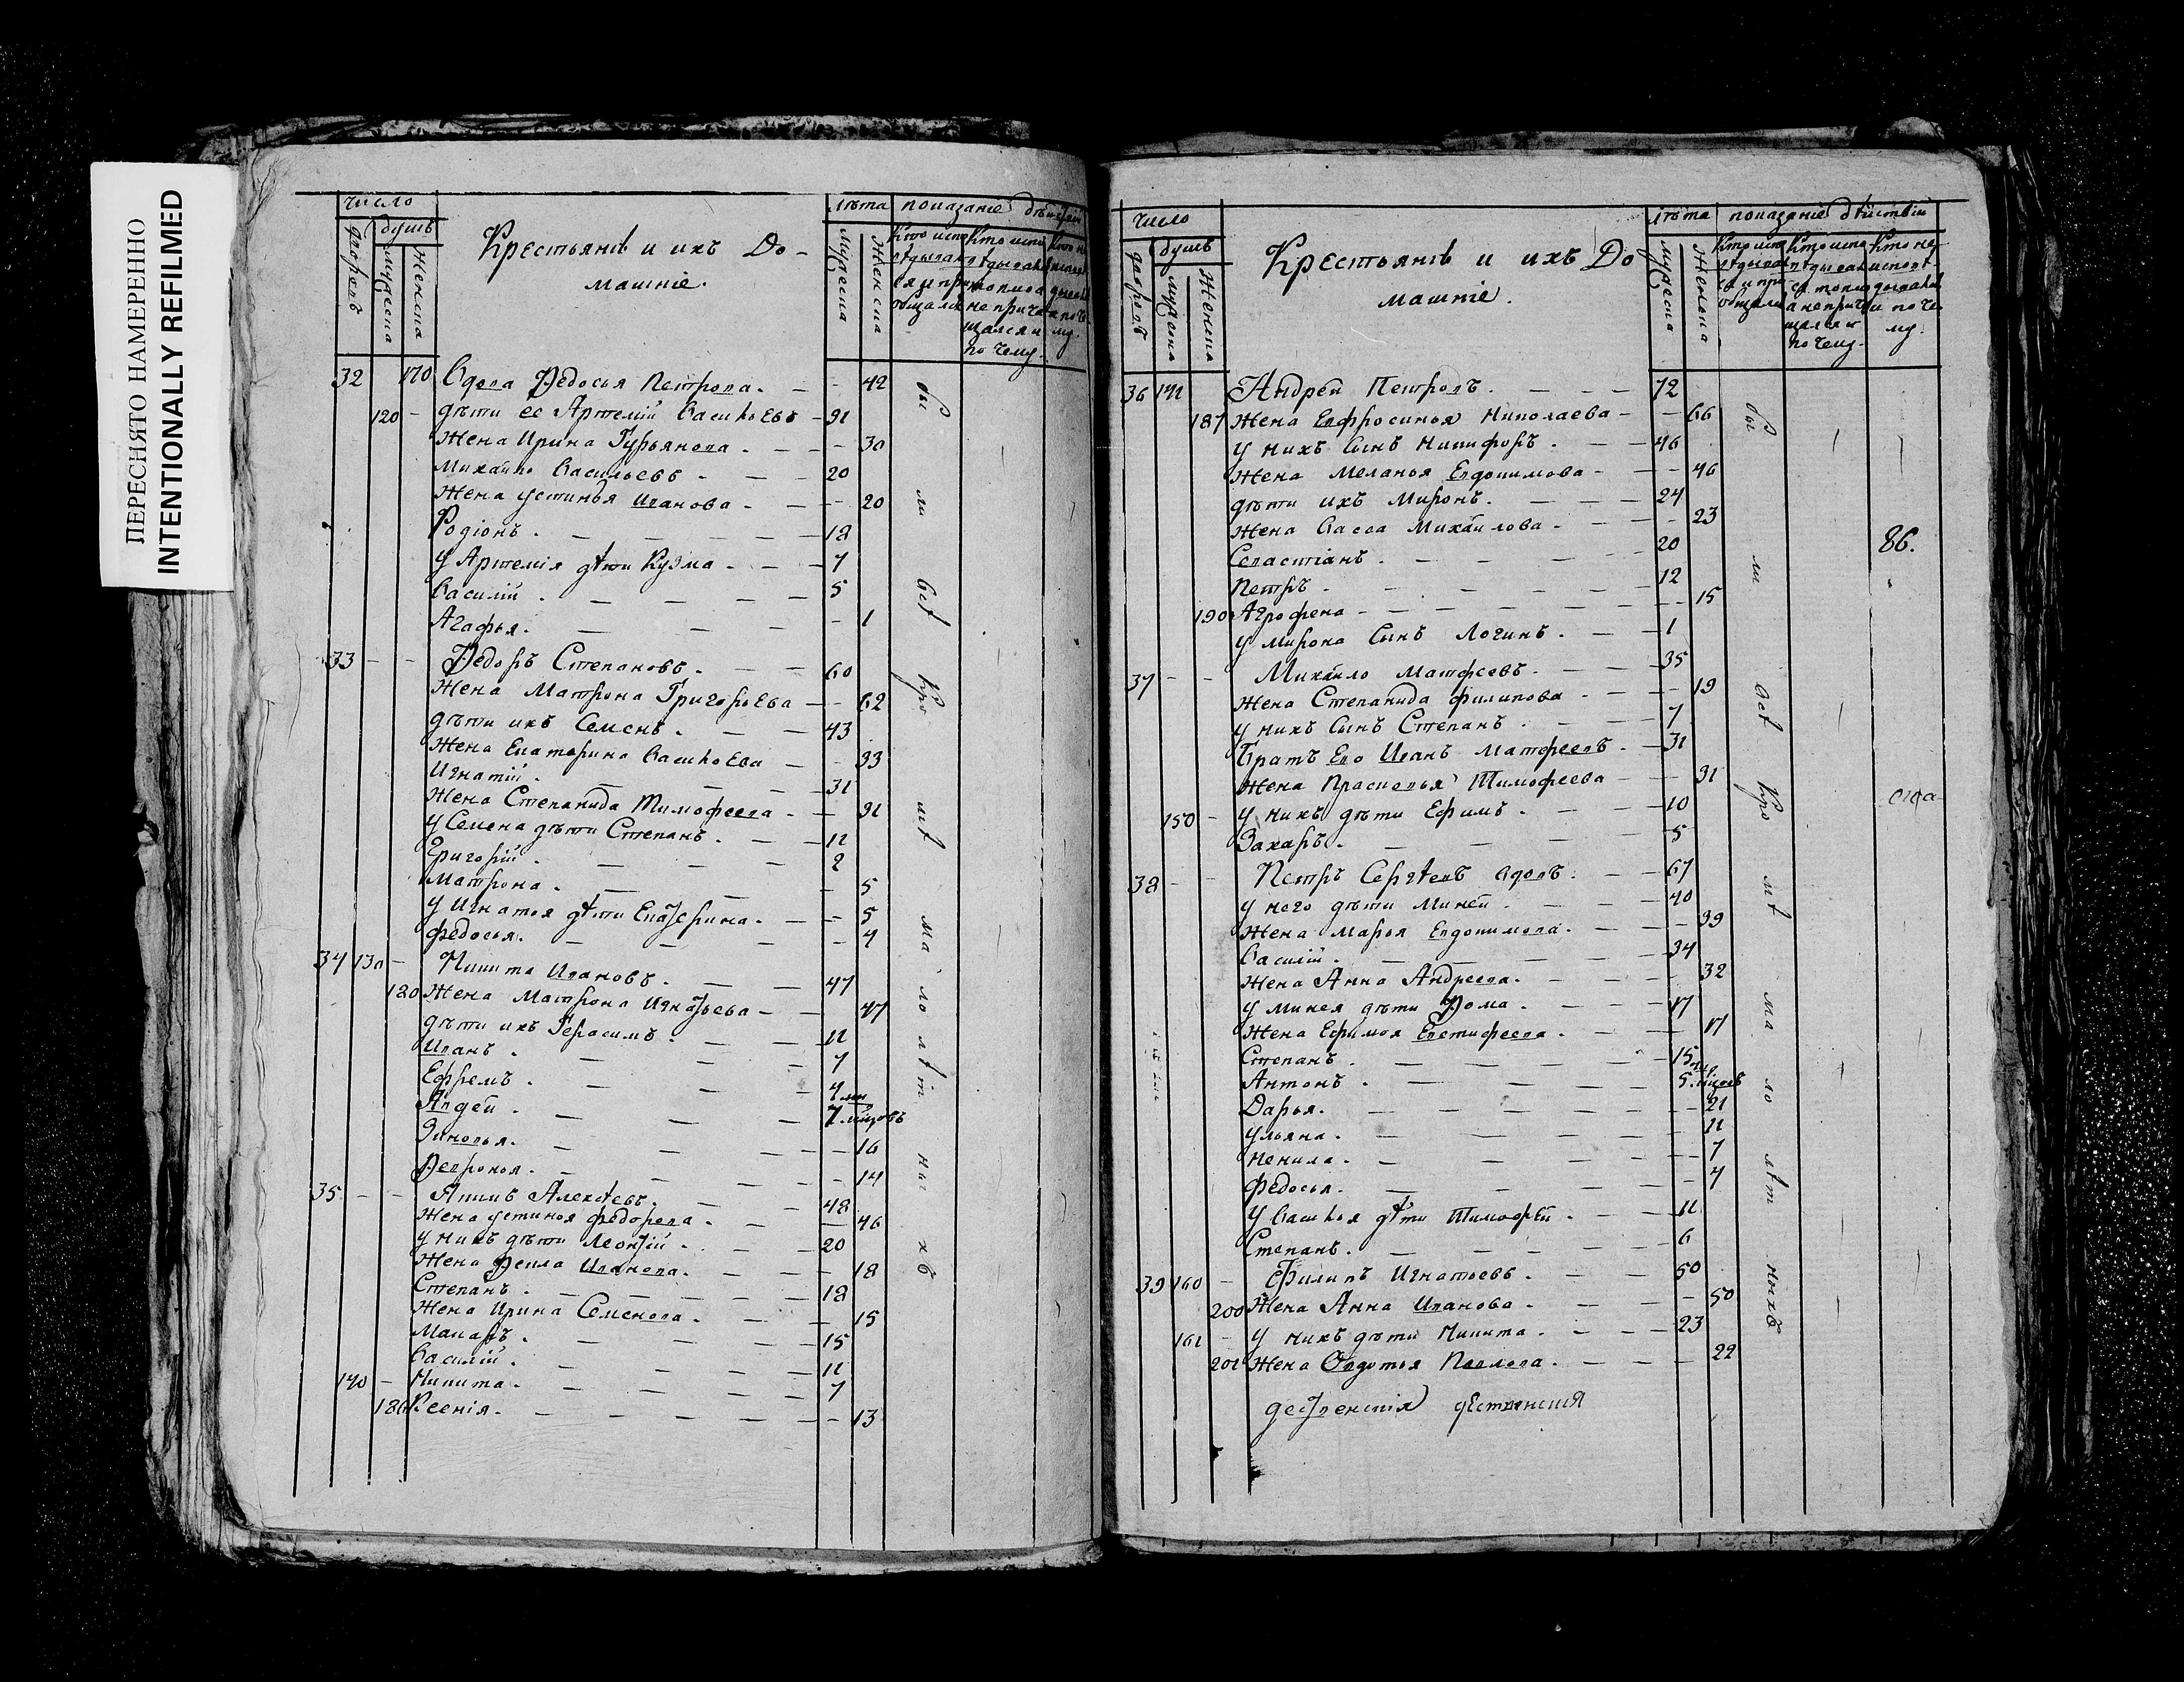 ПЕРЕСНЯТО НАМЕРЕННО
INTENTIONALLY REFILMED
число
душъ
дворовъ
мужеска
женска
Крестьянѣ и ихъ До-
машніе.
лѣта
мужеска
женска
показаніе
Кто испо
не прича
щался и
по чему.
32 170 Вдова Ѳедосья Петрова. 42
120 дѣти ее Артемій Васильевъ 31
жена Ирина Гурьянова. 30
Михайло Васильевъ. 20
жена Устинья Иванова. 20
Родіонъ. 18
у Артемія дѣти Кузма. 7
Василій. 5
Агафья. 1
33 Ѳедоръ Степановъ. 60
жена Матрона Григорьева 62
дѣти ихъ Семенъ. 43
жена Екатерина Васильева 33
Игнатій. 31
жена Степанида Тимофеева. 31
у Семена дѣти Степанъ. 11
Григорій. 2
Матрона. 5
у Игнатья дѣти Екатерина. 5
Федосья. 4
34 130 Никита Ивановъ. 47
180 жена Матрона Игнатьева 47
дѣти ихъ Герасимъ. 11
Иванъ. 7
Ефремъ. 4
Авдей. 7
Зиновья. 16
Ѳевронья. 14
35 Якимъ Алексѣевъ. 48
жена Устинья Федорова. 46
у нихъ дѣти Леонтій. 20
жена Ѳекла Иванова. 18
Степанъ. 18
жена Ирина Семенова. 15
Макаръ. 15
Василій. 11
140 Никита. 7
186 Ксенія. 13
бы ли всѣ кро мѣ ма ло лѣт ны хъ
число
душъ
дворовъ
мужеска
женска
Крестьянѣ и ихъ До
машніе.
лѣта
мужеска
женска
показаніе дѣйствій
Кто испо
щался и
по чему.
Кто не
му.
36 141 Андрей Петровъ. 72
187 жена Евфросинья Николаева 66
у нихъ сынъ Никифоръ. 46
жена Меланья Евдокимова 46
дѣти ихъ Миронъ. 24
жена Васса Михайлова. 23
Севастіанъ. 20
86.
Петръ. 12
190 Агрофена 15
у Мирона сынъ Логинъ. 1
37 Михайло Матфеевъ. 35
жена Степанида Филипова 19
у нихъ сынъ Степанъ. 7
братъ его Иванъ Матфеевъ. 31
жена Прасковья Тимофеева 31
150 у нихъ дѣти Ефимъ. 10
Захаръ. 5
38 Петръ Сергѣевъ вдовъ. 67
у него дѣти Миней. 40
жена Марья Евдокимова. 39
Василій. 34
жена Анна Андреева. 32
у Минея дѣти Ѳома. 17
жена Ефимья Евстифеева. 17
Степанъ. 15
Антонъ. 5
Дарья. 21
Ульяна. 11
Ненила. 7
Федосья. 4
у Василья дѣти Тимофей. 11
Степанъ. 6
39 160 Филипъ Игнатьевъ. 50
200 жена Анна Иванова. 50
161 у нихъ дѣти Никита. 23
201 жена Овдотья Павлова. 22
бы ли всѣ кро мѣ ма ло лѣт ныхъ